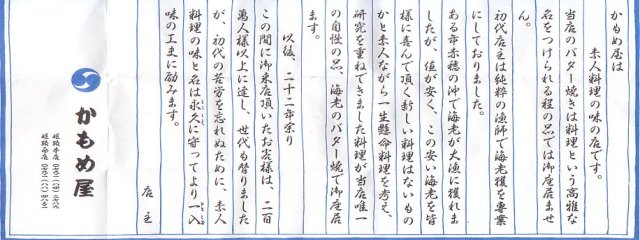 かもめ屋は
素人料理の味の店です。
当店のバター焼きは料理という高雅な
名をつけられる程の品では御座ませ
ん。
初代店主は純粋の漁師で海老獲を専業
にしておりました。
ある年赤穂の沖で海老が大漁に獲れま
したが、値が安く、この安い海老を皆
様に喜んで頂く新しい料理はないもの
かと素人ながら一生懸命料理を考え、
研究を重ねてきました料理が当店唯一
の自慢の品、海老のバター焼で御座居
ます。
以後、二十二年余り
この間に御来店頂いたお客様は、二百
萬人様以上に達し、世代も替りました
が、初代の苦労を忘れぬために、素人
料理の味と名は永久に守ってより一入
味の工夫に励みます。
店主
かもめ屋
姫路本店
姫路西店